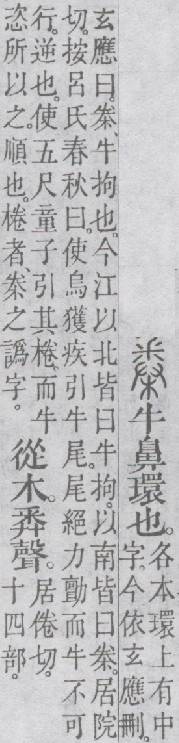 桊牛鼻環也。
各本環上有中
字。今依玄應刪。
玄應曰。桊、牛拘也。今江以北皆曰牛拘。以南皆曰桊。居院
切。按呂氏春秋曰。使烏獲疾引牛尾。尾絕力勯而牛不可
行。逆也。使五尺童子引其棬、而牛
恣所以之。順也。棬者、桊之譌字。
從木。𢍏聲。
居倦切。
十四部。